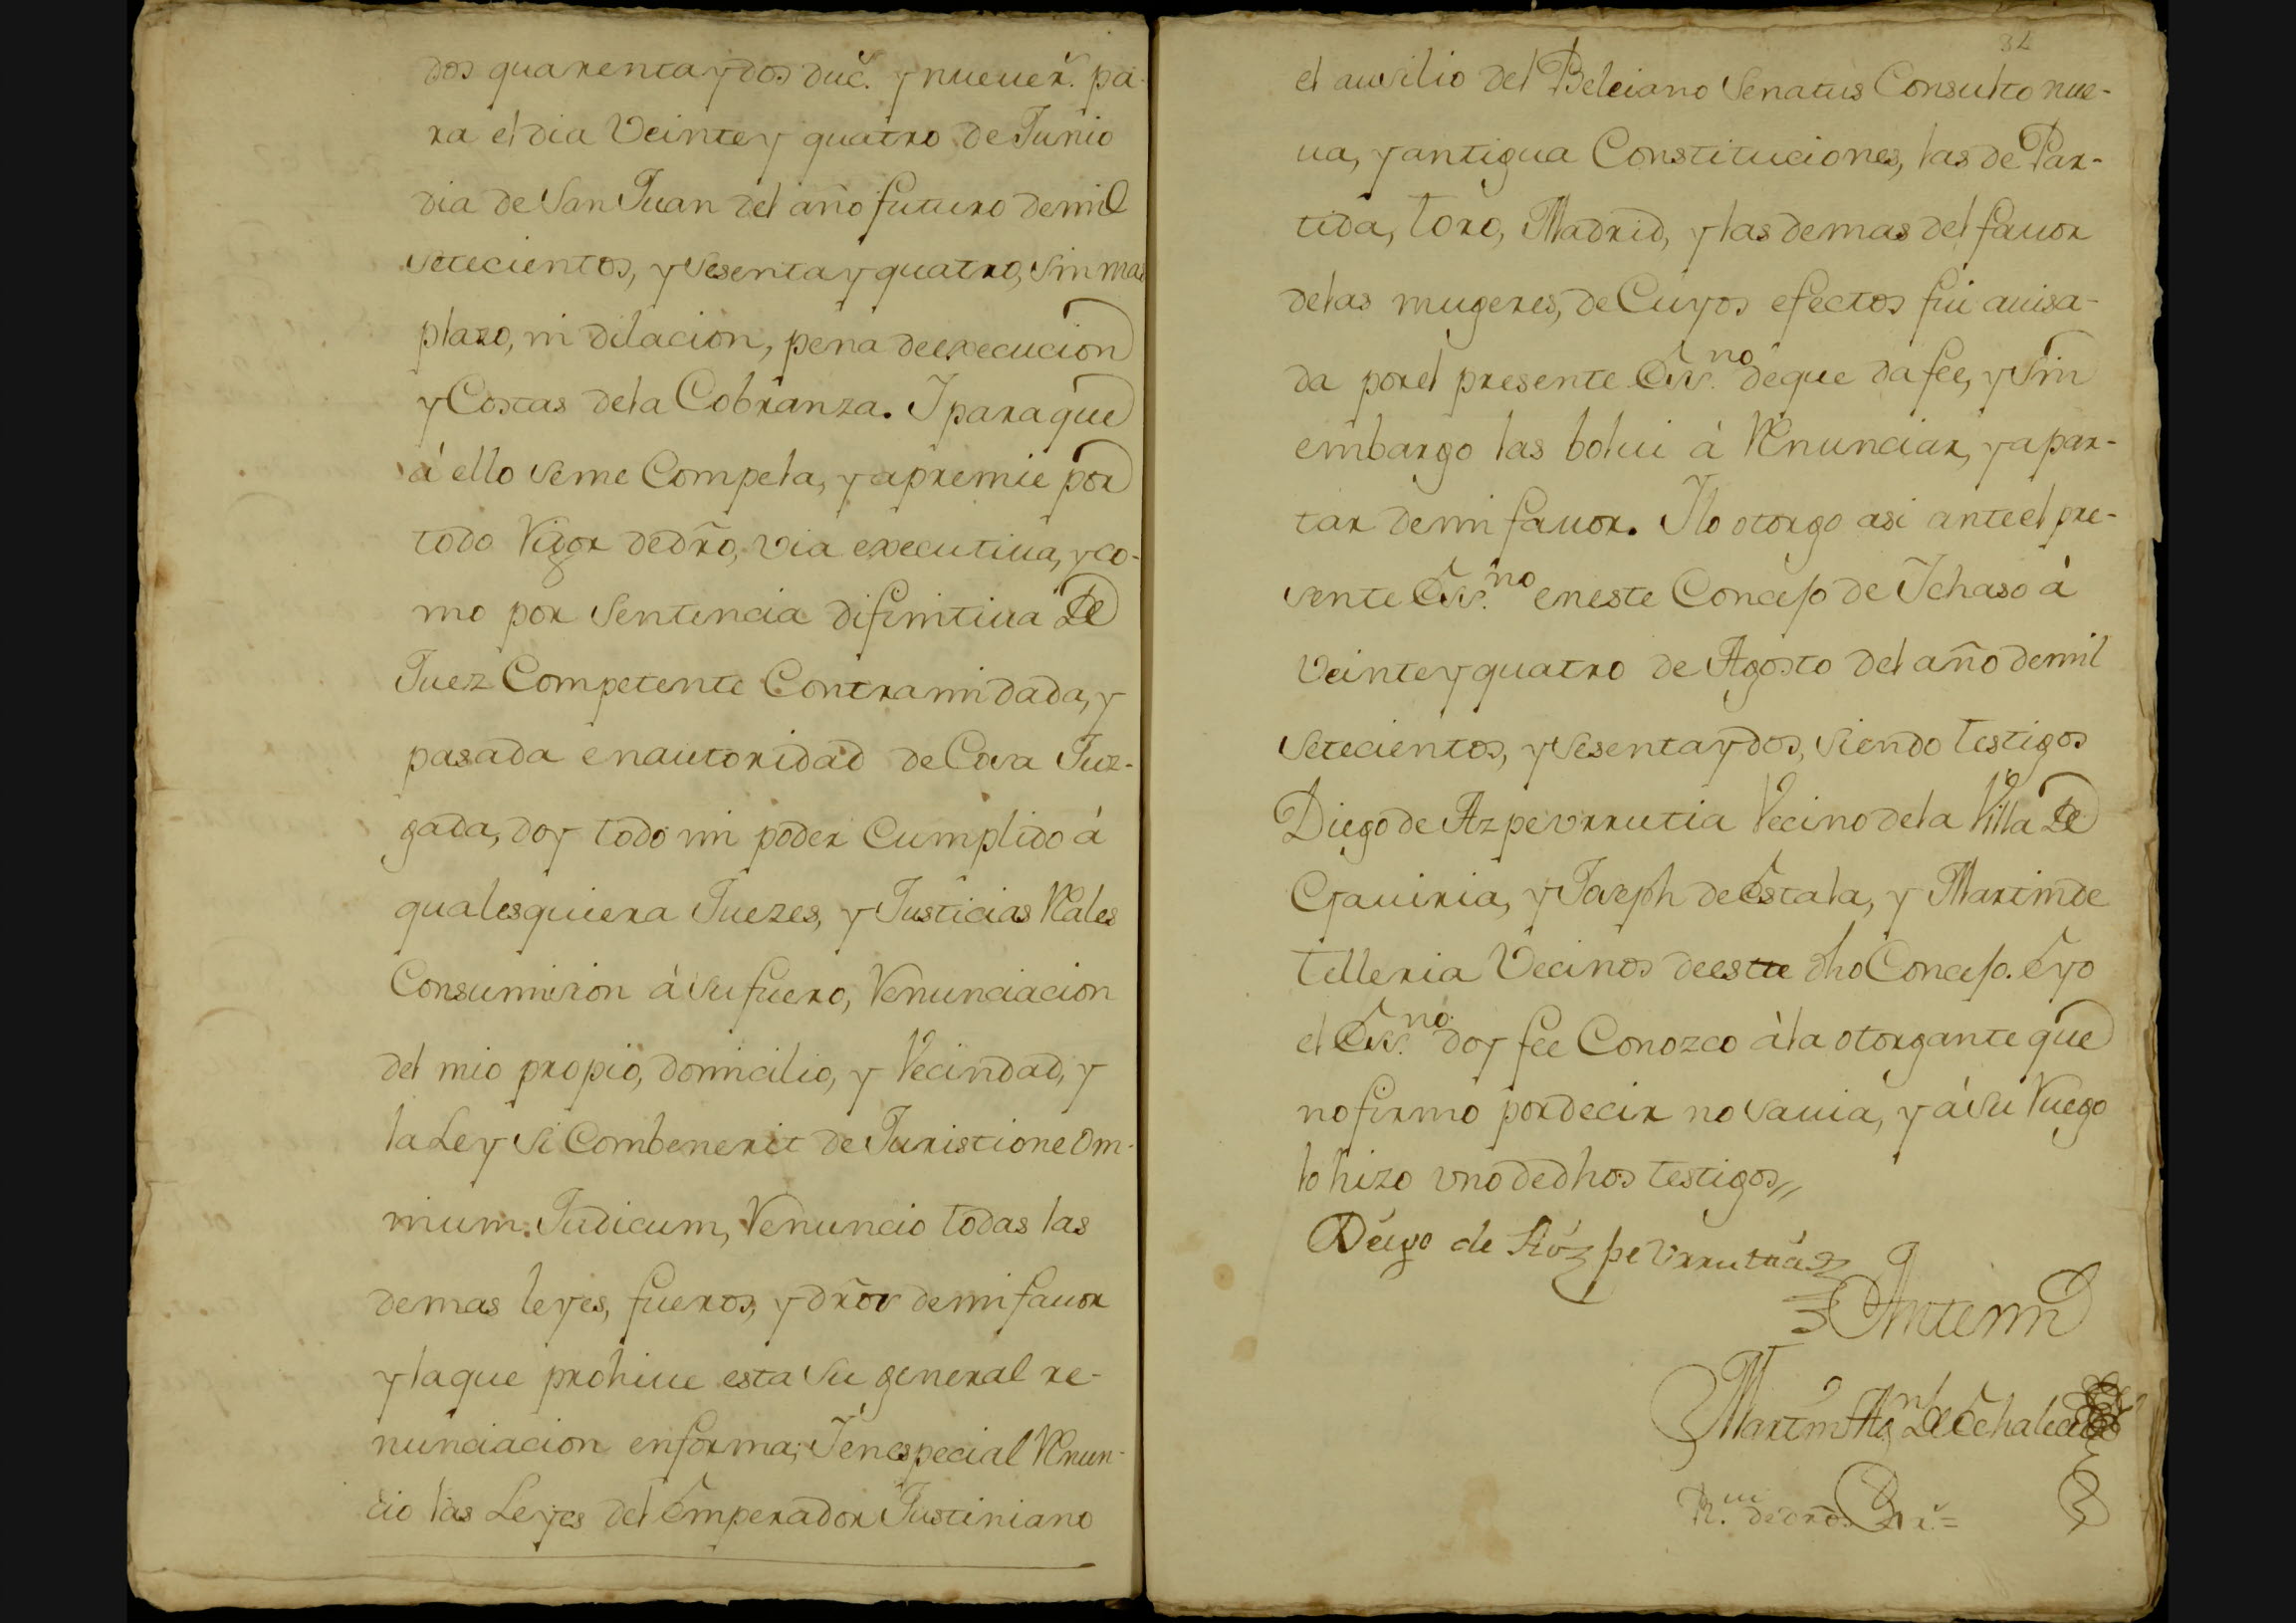 dos quarenta y dos duc.ˢ y nueue r.ˢ pa-
ra el dia Veinte y quatro de Junio
dia de San Juan del año futuro de mil
setecientos, y sesenta y quatro, sin mas
plazo, ni dilacion, pena de execucion
y Costas de la Cobranza. I para que
á ello se me Compela, y apremie por
todo rigor de dr̃o, via executiua, y co-
mo por Sentencia difinitiua De
Juez Competente Contra mi dada, y
pasada en autoridad de Cosa Juz-
gada, doy todo mi poder Cumplido á
qualesquiera Juezes, y Justicias Rales
Con sumision á su fuero, renunciacion
del mio propio, domicilio, y Vecindad, y
la Ley Si Combenerit de Juristione Om-
nium Judicum, renuncio todas las
demas leyes, fueros, y dr̃os de mi fauor
y la que prohiue esta su general re-
nunciacion en forma; I en especial renun-
cio las Leyes del Emperador Justiniano
el ausilio del Beleiano Senatus Consulto nue-
ua, y antigua Constituciones, las de Par-
tida, Toro, Madrid, y las demas del fauor
de las mugeres, de Cuyos efectos fui auisa-
da por el presente Ess.ⁿᵒ de que da fee, y sin
embargo las bolui á renunciar, y apar-
tar de mi fauor. I lo otorgo asi ante el pre-
sente Ess.ⁿᵒ en este Concejo de Ichaso á
Veinte y quatro de Agosto del año de mil
setecientos, y sesenta y dos, siendo testigos
Diego de Azpeurrutia Vecino de la Villa De
Gauiria, y Joseph de Estala, y Martin de
Telleria Vecinos de este dho Concejo. E yo
el Ess.ⁿᵒ doy fee Conozco á la otorgante que
no firmo por decir no sauia, y á su ruego
lo hizo vno de dhos testigos //
Diego de Azpe Vrrutia
Ante mi
Martin Ag.ⁿ De Echalecu
de dr̃os